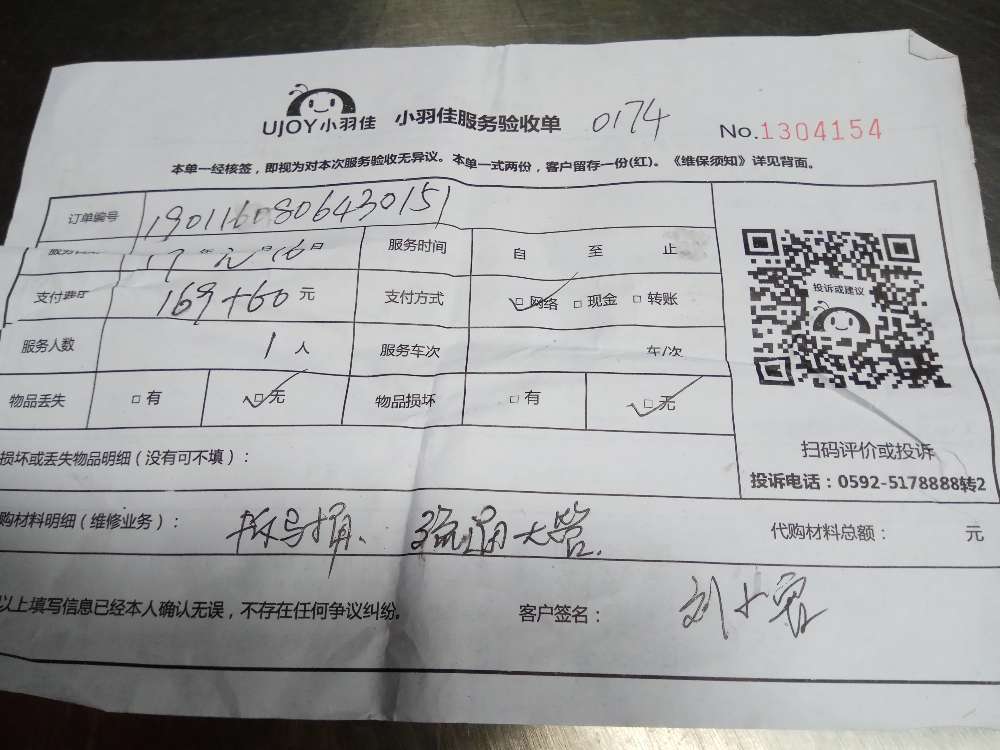 UJOY小羽佳 小羽佳服务验收单 0174 No.1304154
本单一经核签，即视为对本次服务验收无异议。本单一式两份，客户留存一份(红)。《维保须知》详见背面。
订单编号 1901160806430151
服务时间 自 至 止
支付费用 169+60 元 支付方式 网络 □ 现金 □ 转账
投诉或建议
服务人数 1 人 服务车次 车/次
物品丢失 □ 有 □ 无 物品损坏 □ 有 □ 无
扫码评价或投诉
损坏或丢失物品明细（没有可不填）：
投诉电话：0592-5178888转2
购材料明细（维修业务）： 拆马桶. 疏通大管. 代购材料总额： 元
以上填写信息已经本人确认无误，不存在任何争议纠纷。 客户签名：